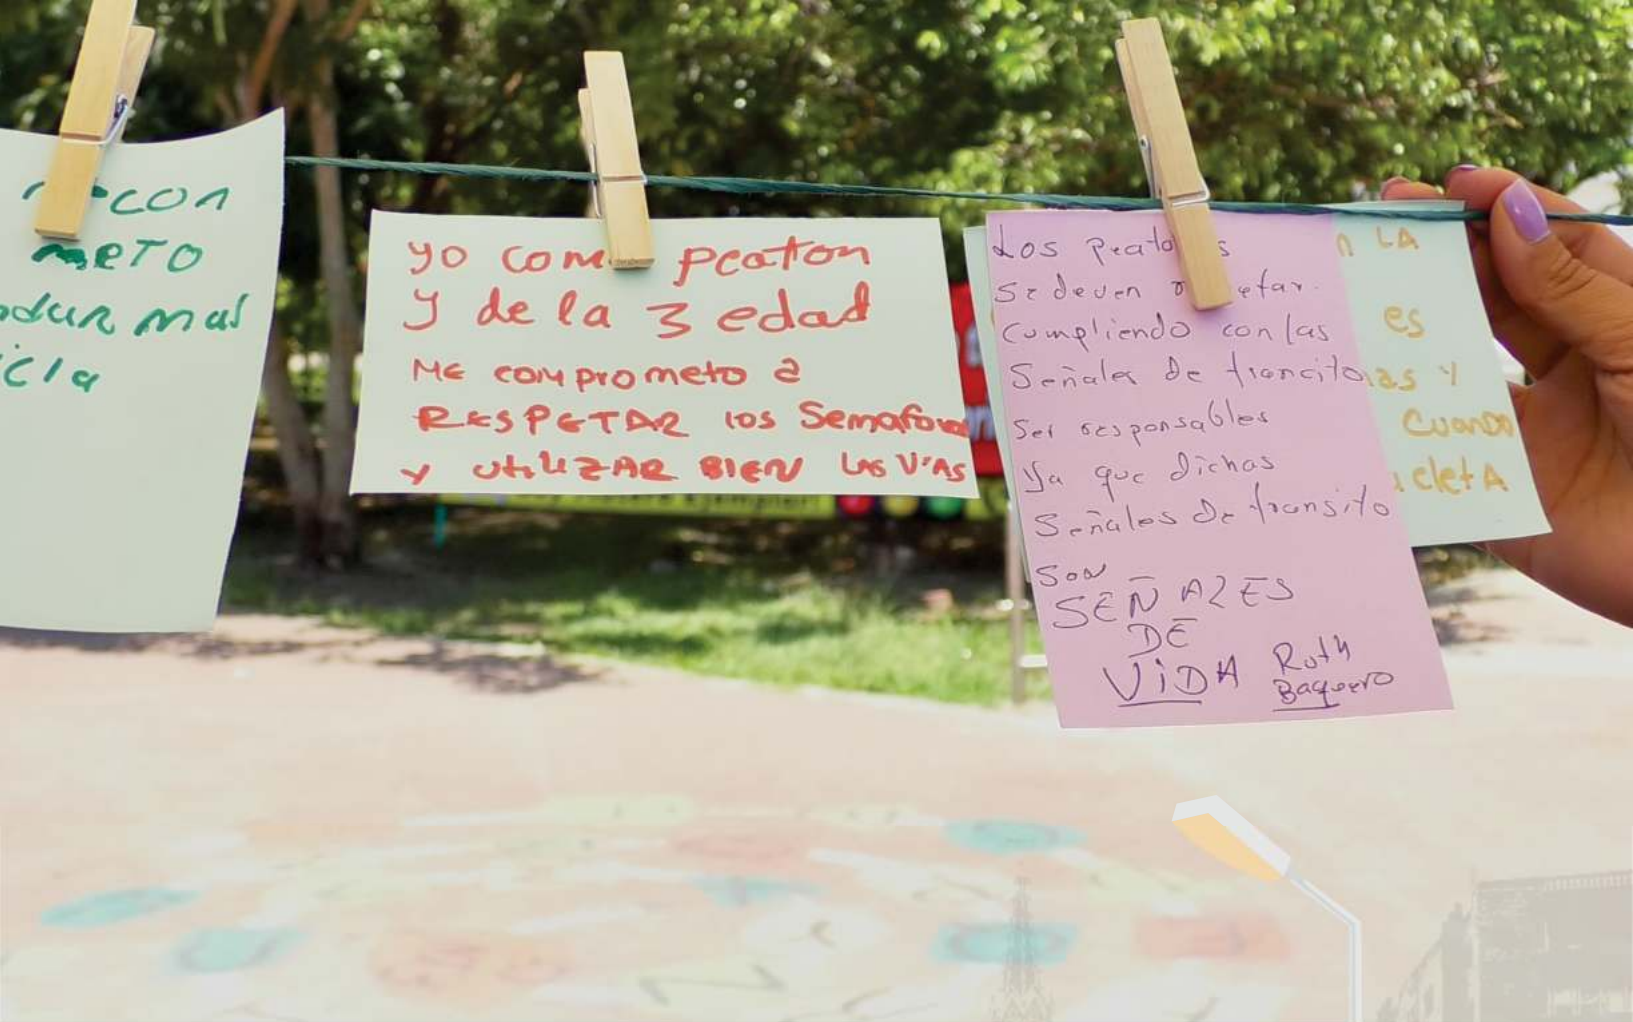 META
mas
cla
yo como peaton
y de la 3 edad
Me comprometo a
RESPETAR los Semaforos
y utilizar BIEN LAS VIAS
Los Peatones
se deven
cumpliendo con las
Señales de trancito
Ser responsables
Ya que dichas
Señales De transito
SON
SEÑALES
DE
ViDA
Ruth
Baquero
LA
es
as y
Cuando
cletA